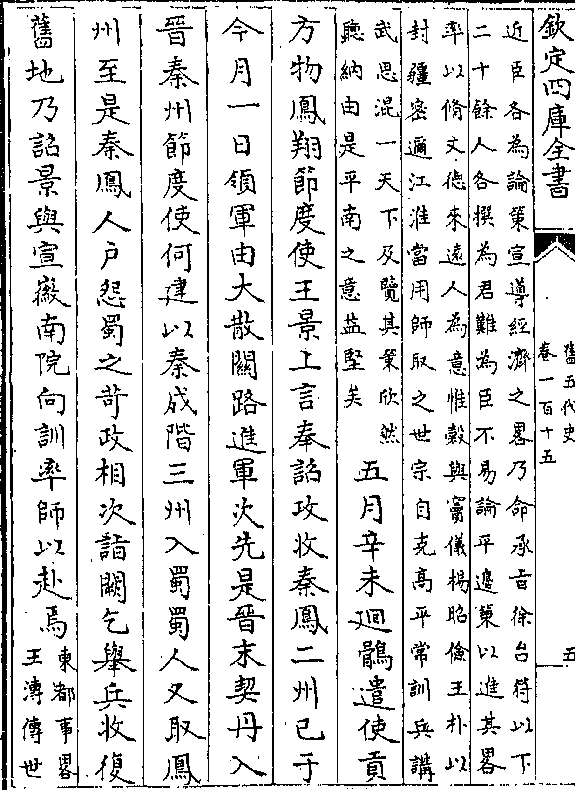 欽定四庫全書
舊五代史
卷一百十五
五
近臣各為論策宣導經濟之畧乃命承㫖徐台符以下
二十餘人各撰為君難為臣不易論平邊策以進其畧
率以脩文德來遠人為意惟穀與竇儀楊昭儉王朴以
封疆密邇江淮當用師取之世宗自克髙平常訓兵講
武思混一天下及覽其策欣然
聽納由是平南之意益堅矣
五月辛未廻鶻遣使貢
方物鳳翔節度使王景上言奉詔攻收秦鳳二州已于
今月一日領軍由大散關路進軍次先是晉末契丹入
晉秦州節度使何建以秦成階三州入蜀蜀人又取鳳
州至是秦鳳人户怨蜀之苛政相次詣闕乞舉兵收復
舊地乃詔景與宣徽南院向訓率師以赴焉
東都事畧
王溥傳世